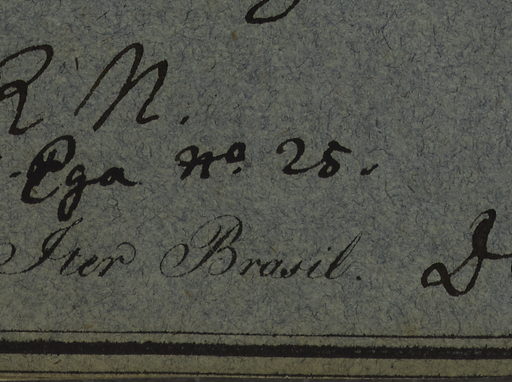 R N.
Ega No. 25.
Iter Brasil. D